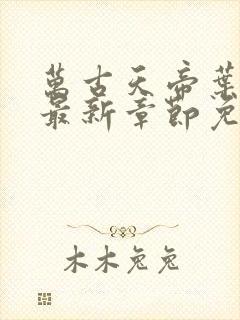 萬古天帝葉
最新章節免
木木兔兔